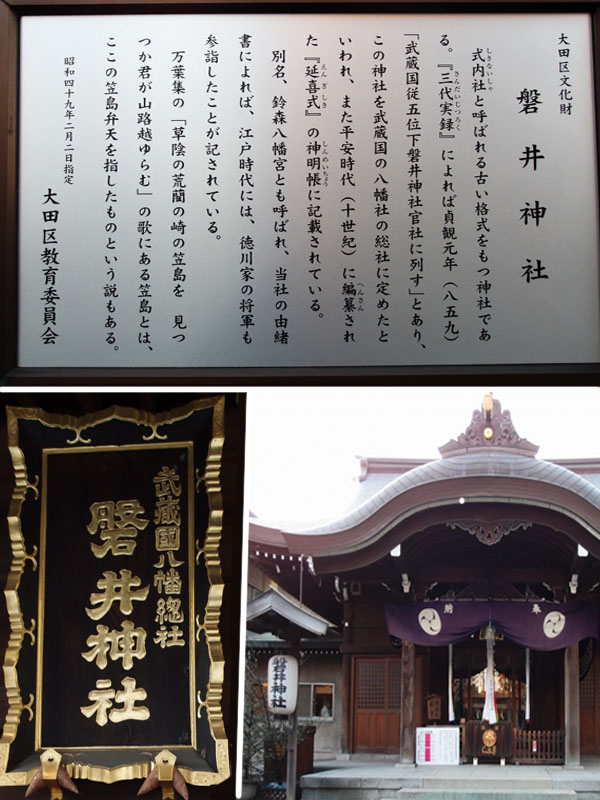 大田区文化財
磐井神社
式内社と呼ばれる古い格式をもつ神社であ
る。『三代実録』によれば貞観元年(八五九)
「武蔵国従五位下磐井神社官社に列す」とあり、
この神社を武蔵国の八幡社の総社に定めたと
いわれ、また平安時代(十世紀)に編纂され
た『延喜式』の神明帳に記載されている。
別名、鈴森八幡宮とも呼ばれ、当社の由緒
書によれば、江戸時代には、徳川家の将軍も
参詣したことが記されている。
万葉集の「草陰の荒藺の崎の笠島を 見つ
つか君が山路越ゆらむ」の歌にある笠島とは、
ここの笠島弁天を指したものという説もある。
昭和四十九年二月二日指定
大田区教育委員会
武蔵國八幡總社
磐井神社
奉納
磐井神社